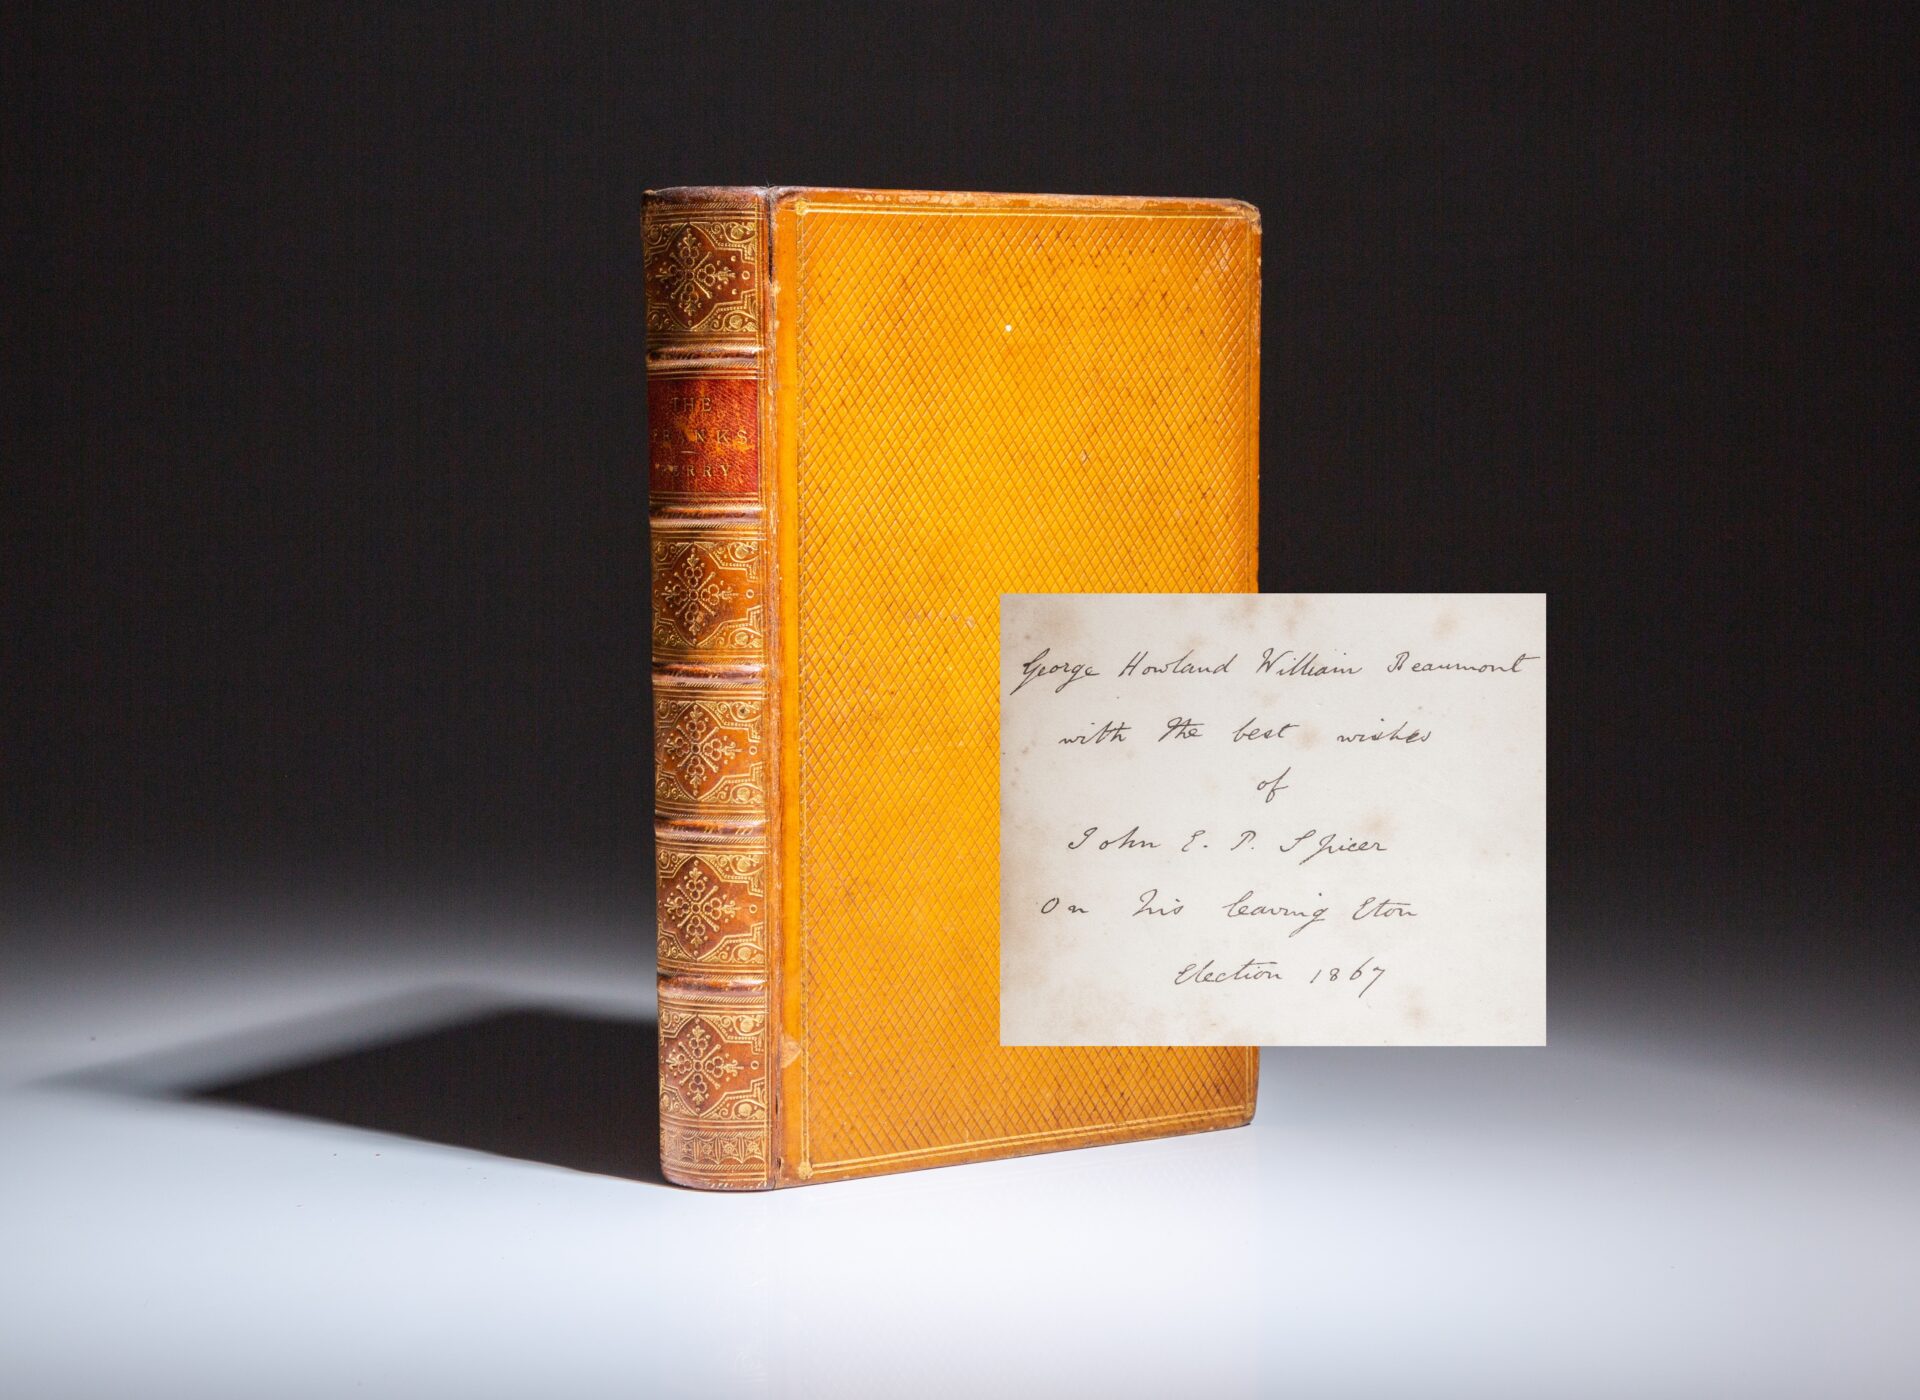 THE
FRANKS
PERRY
George Howland William Beaumont
with the best wishes
of
John E. P. Spicer
On his leaving Eton
Election 1867